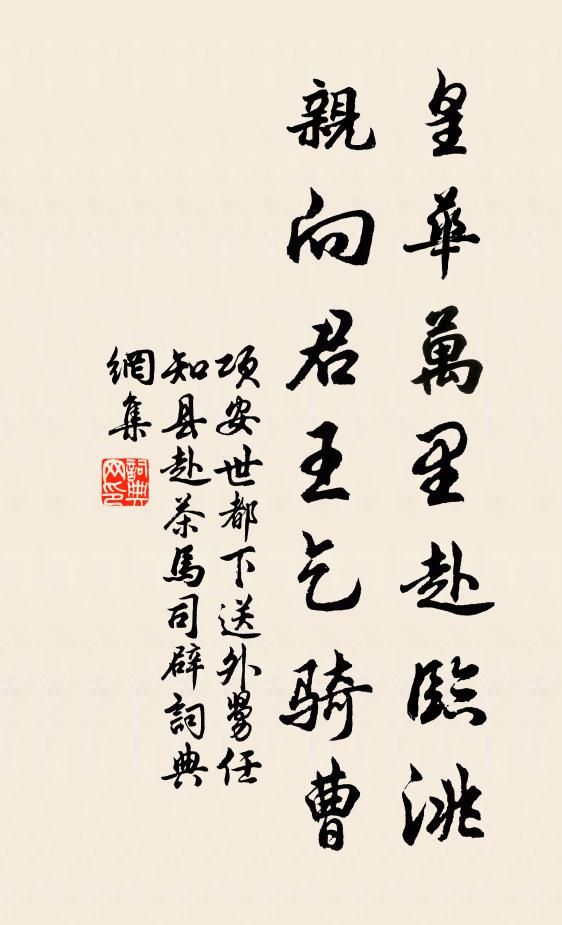 皇華萬里赴臨洮
親向君王乞騎曹
項安世都下送外舅任
知县赴茶馬司辟詞典
網集
詞典
网印